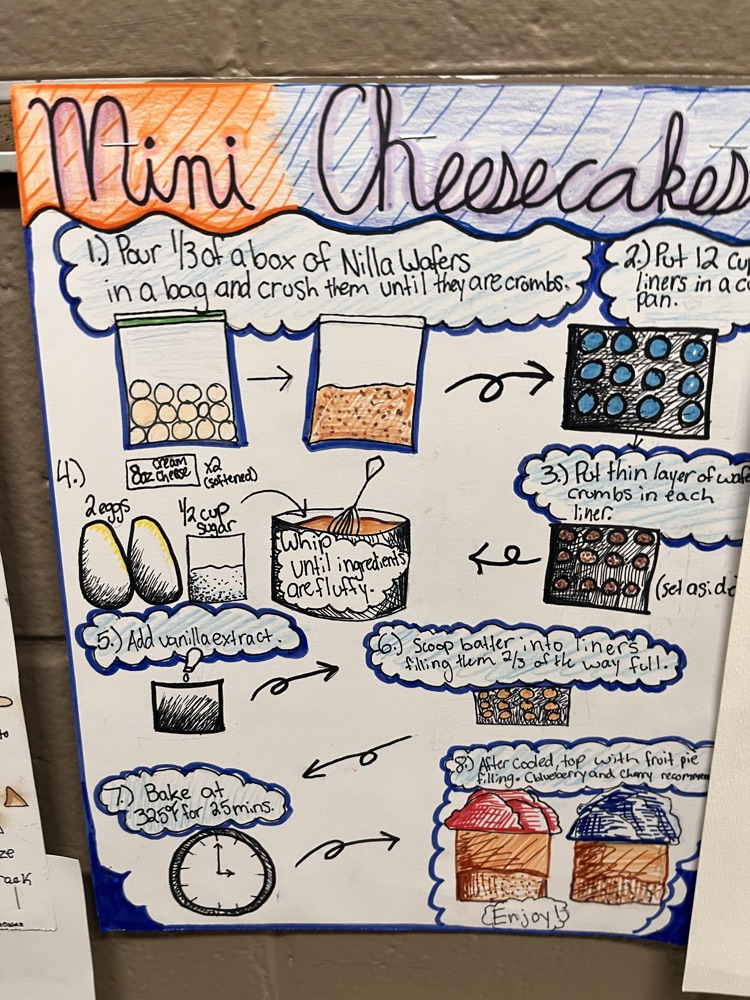 Mini Cheesecakes
1.) Pour 1/3 of a box of Nilla Wafers
in a bag and crush them until they are crombs.
2.) Put 12 cu
liners in a c
pan.
3.) Put thin layer of wafe
crumbs in each
liner.
(set aside
4.)
8oz cream cheese x2
(softened)
2 eggs
1/2 cup
sugar
Whip
until ingredients
are fluffy.
5.) Add vanilla extract.
6.) Scoop batter into liners
filling them 2/3 of the way full.
7.) Bake at
325°F for 25 mins.
8.) After cooled, top with fruit pie
filling. (blueberry and cherry recommen
Enjoy!
to
ze
rack